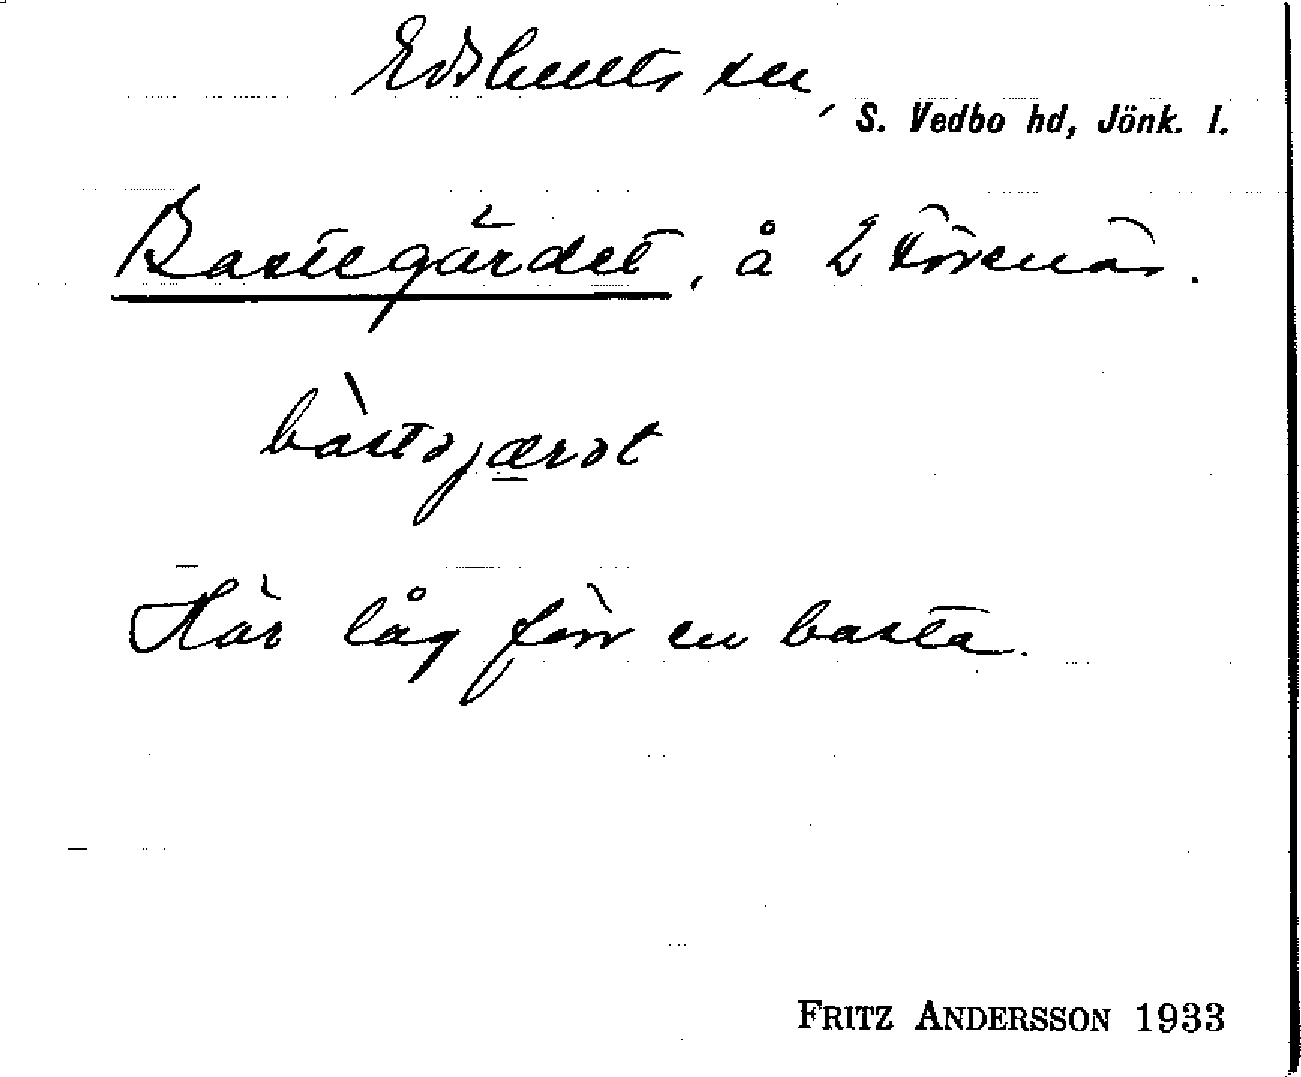 Edshults sn
, S. Vedbo hd, Jönk. l.
Bastegärdet, å
bàstəjærdt
Här låg förr en basta.
FRITZ ANDERSSON 1933